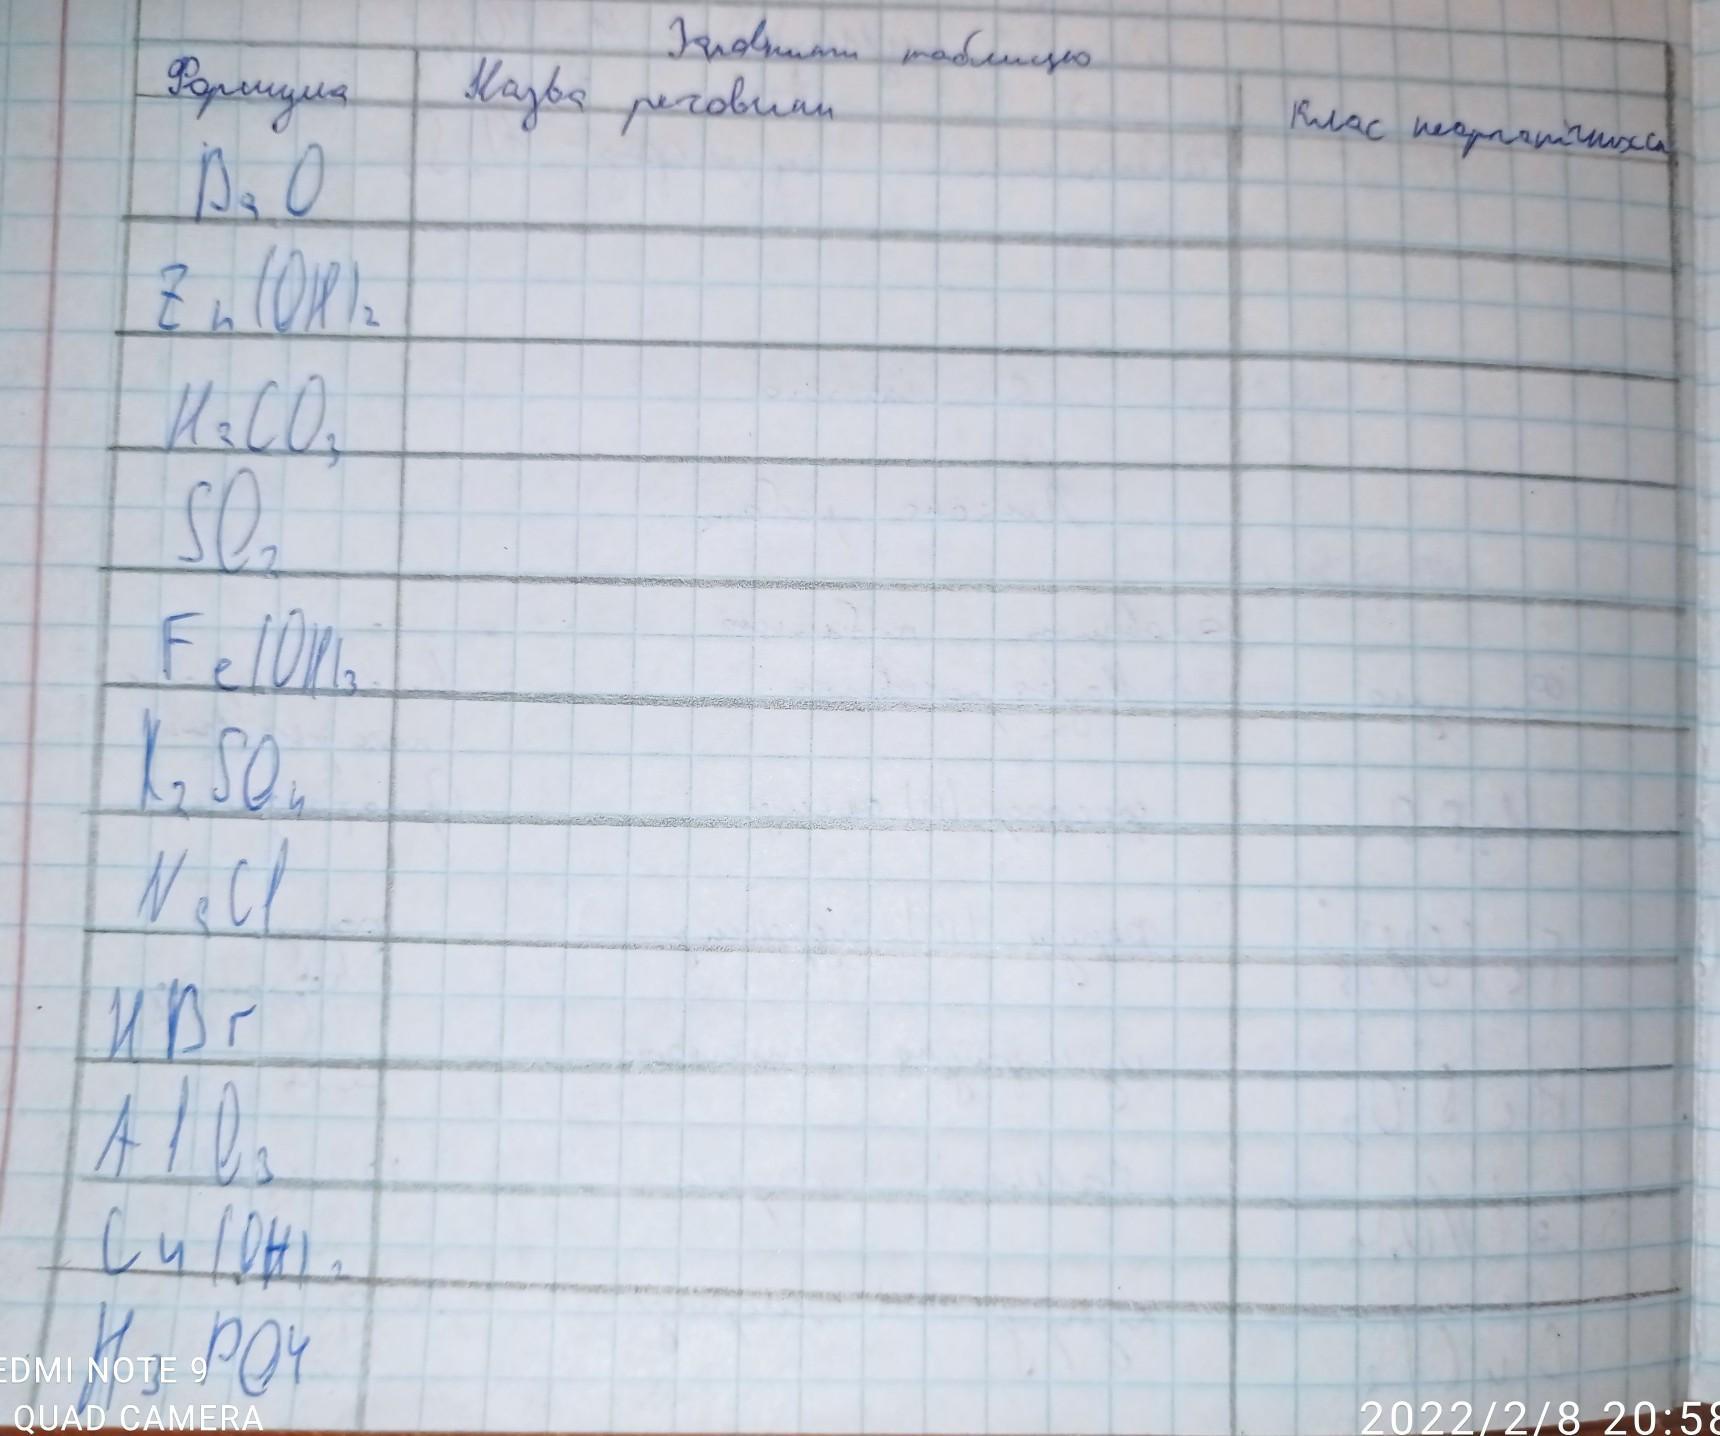 Заповнити таблицю
Формула Назва речовини Клас неорганічних сп
BaO
Zn(OH)₂
H₂CO₃
SO₂
Fe(OH)₃
K₂SO₄
NaCl
HBr
AlO₃
Cu(OH)₂
H₃PO4
EDMI NOTE 9
QUAD CAMERA
2022/2/8 20:58